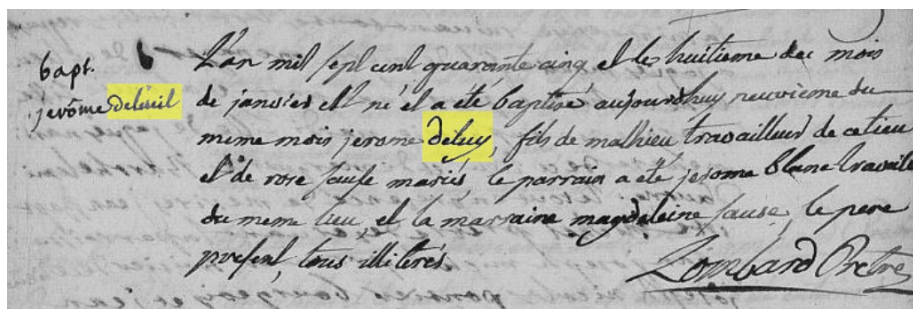 bapt.
jerôme deluil
L'an mil sept cent quarante cinq et les huitieme du mois
de janvier est né et a eté baptisé aujourdhuy neuvieme du
meme mois jerome deluy, fils de mathieu travailleur de ce lieu
et de rose sause mariés, le parrain a eté jerome blanc travaille
du meme lieu, et la marraine magdeleine sause, le pere
present, tous illiterés.
Lombard Pretre